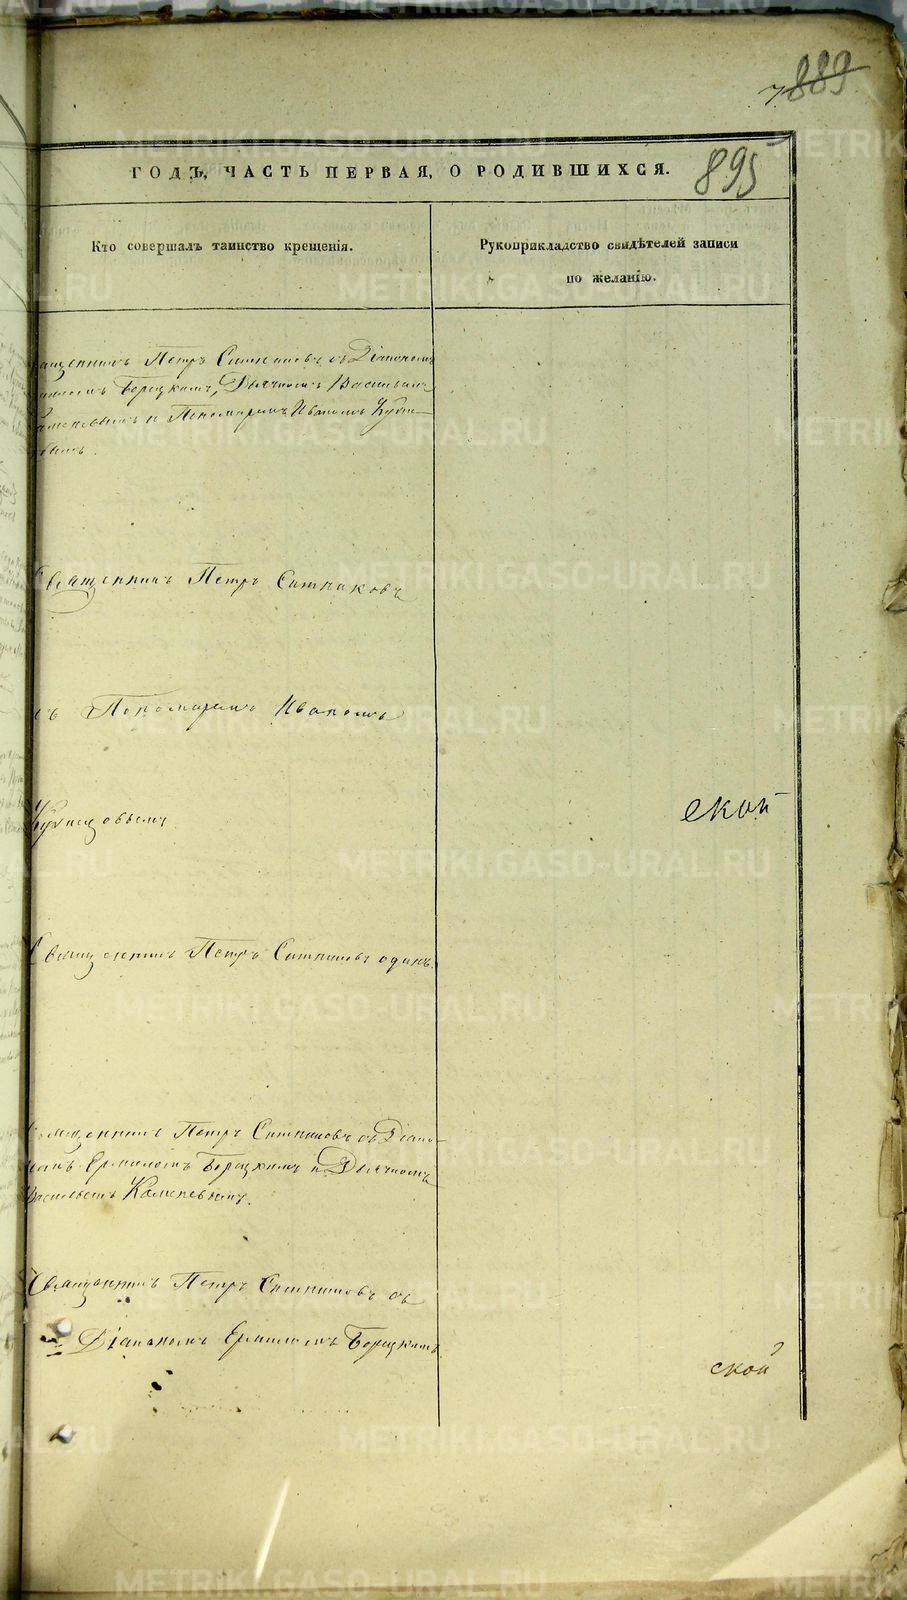 889
895
ГОДЪ, ЧАСТЬ ПЕРВАЯ, О РОДИВШИХСЯ.
Кто совершалъ таинство крещенія.
Рукоприкладство свидѣтелей записи
по желанію.
Петръ Ситниковъ съ Діакономъ
Борецкимъ, Дьячкомъ Васильемъ
и Пономаремъ Иваномъ Кузне-
Священникъ Петръ Ситниковъ
съ Пономаремъ Иваномъ
Кузнецовымъ
ской
Священникъ Петръ Ситниковъ одинъ.
Священникъ Петръ Ситниковъ съ Діако-
номъ Ермиломъ Борецкимъ и Дьячкомъ
Васильемъ Каменевымъ.
Священникъ Петръ Ситниковъ съ
Діакономъ Ермиломъ Борецкимъ
ской
METRIKI.GASO-URAL.RU